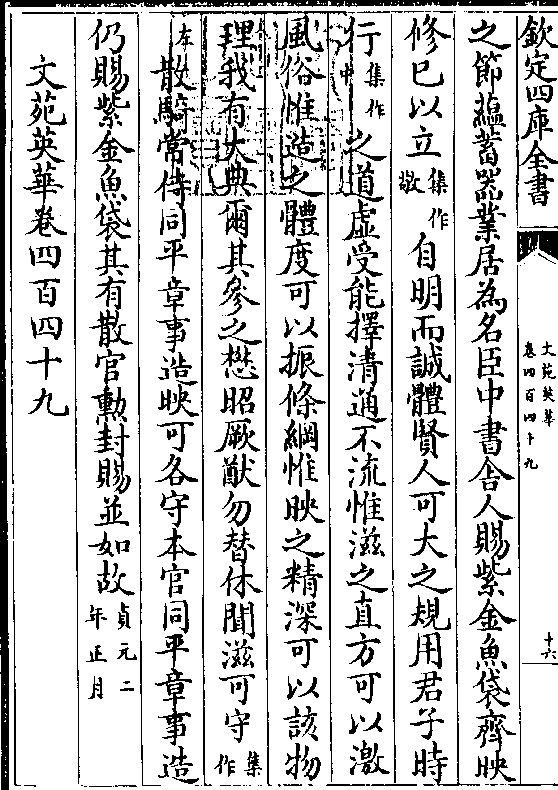 欽定四庫全書
文苑英華
卷四百四十九
十六
之節蘊蓄器業居為名臣中書舍人賜紫金魚袋齊映
修己以立集作敬自明而誠體賢人可大之規用君子時
行集作中之道虛受能擇清通不流惟滋之直方可以激
風俗惟造之體度可以振條綱惟映之精深可以該物
理我有大典爾其參之懋昭厥猷勿替休聞滋可守集作
左散騎常侍同平章事造映可各守本官同平章事造
仍賜紫金魚袋其有散官勳封賜並如故貞元二年正月
文苑英華卷四百四十九